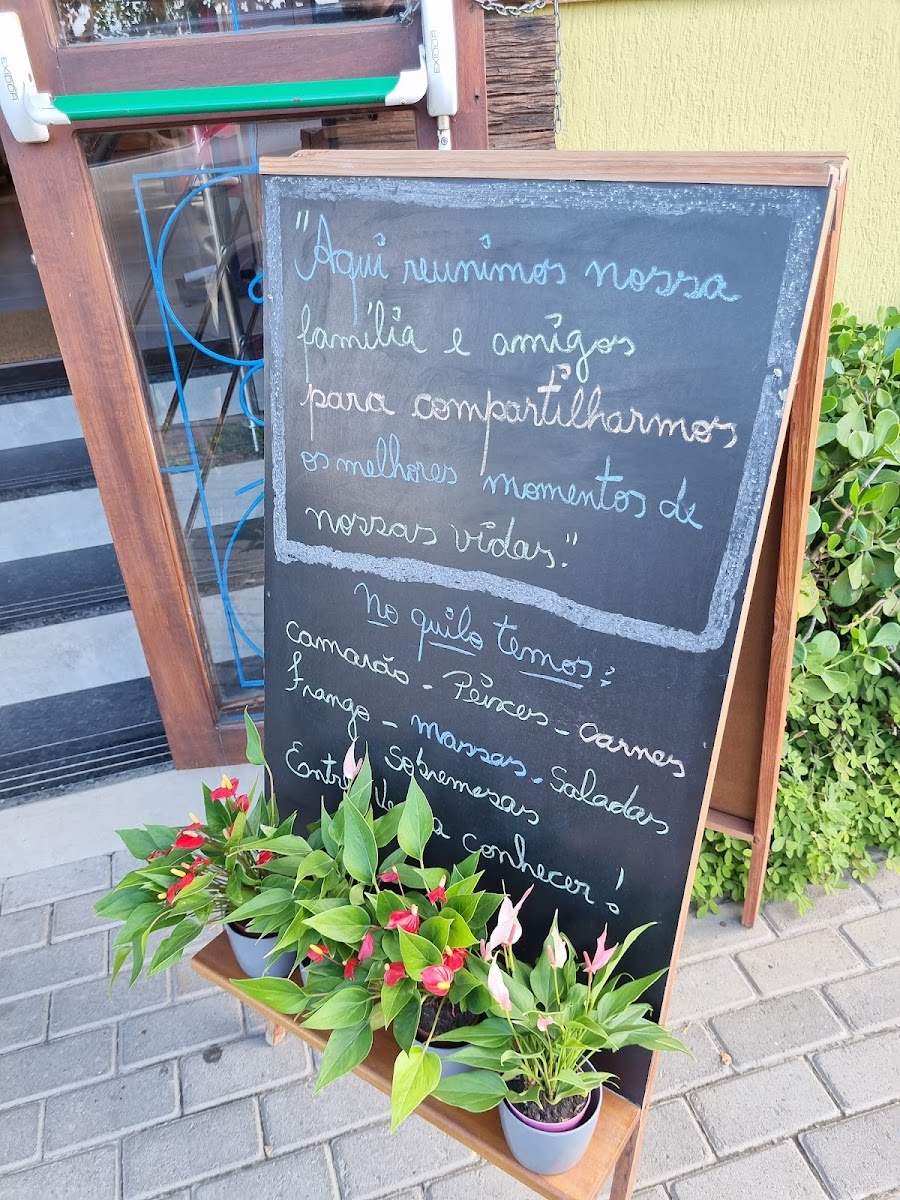 EXIDOR
EXIDOR
"Aqui reunimos nossa
família e amigos
para compartilharmos
os melhores momentos de
nossas vidas."
No quilo temos:
camarão - Peixes - Carnes
Frango - Massas - Saladas
Sobremesas
conhecer!